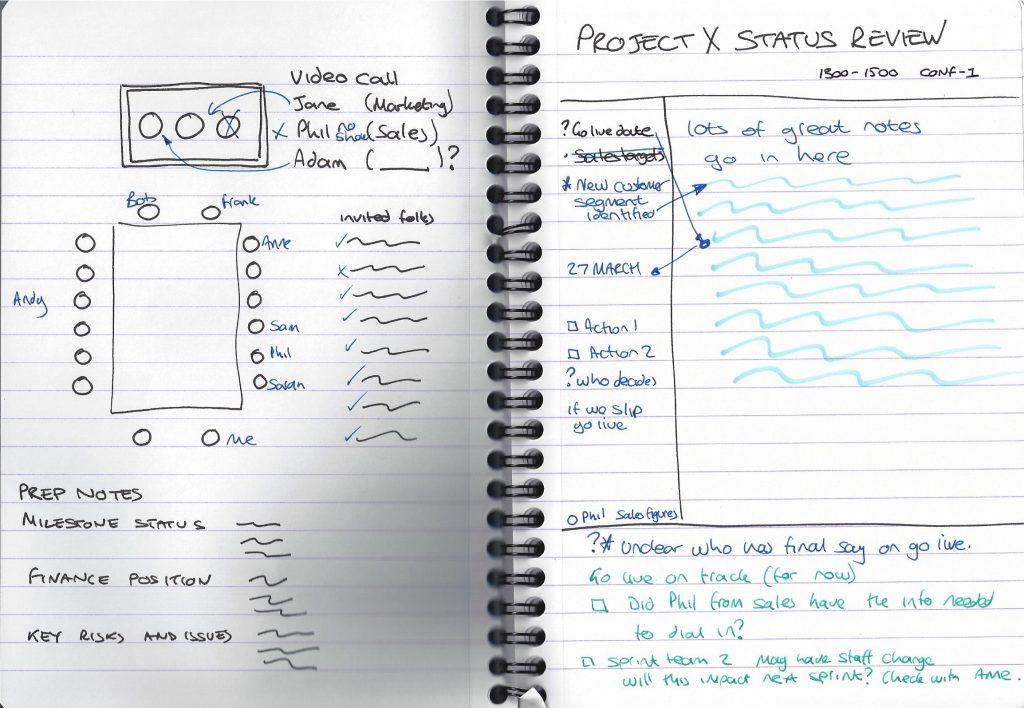 Video Call
Jane (Marketing)
x Phil no show (Sales)
Adam (____)?
Bob
Frank
Anne
Andy
Sam
Phil
Sarah
Me
invited folks
PREP NOTES
MILESTONE STATUS
FINANCE POSITION
KEY RISKS AND ISSUES
PROJECT X STATUS REVIEW
1300-1500 CONF-1
? Go live date
• Sales targets
* New customer
segment
identified
27 MARCH
□ Action 1
□ Action 2
? Who decides
if we slip
go live
○ Phil Sales figures
lots of great notes
go in here
?* Unclear who has final say on go live.
Go live on track (for now)
□ Did Phil from sales have the info needed
to dial in?
□ Sprint team 2 May have staff change
will this impact next sprint? Check with Anne.